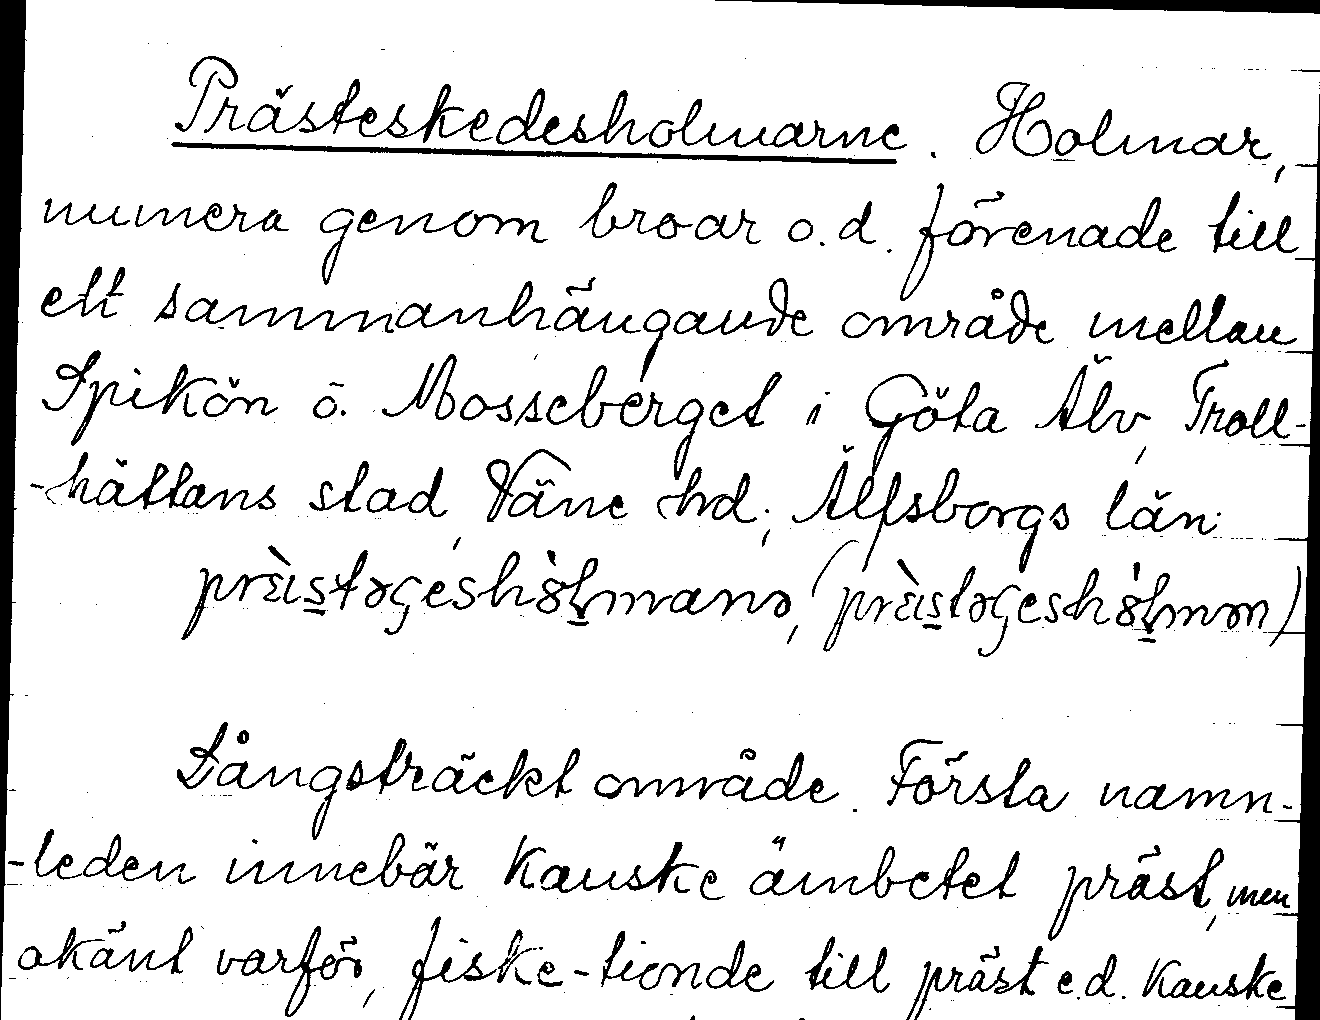 Prästeskedesholmarne. Holmar,
numera genom broar o.d. förenade till
ett sammanhängande område mellan
Spikön o. Mosseberget i Göta Älv, Troll-
-hättans stad, Väne hd; Älfsborgs län.
prɛ̀istəɢeshòlmanə, (prɛ̀istəɢesholmən)
Långsträckt område. Första namn-
-leden innebär kanske ämbetet präst, men
okänt varför, fiske-tionde till präst e.d. kanske